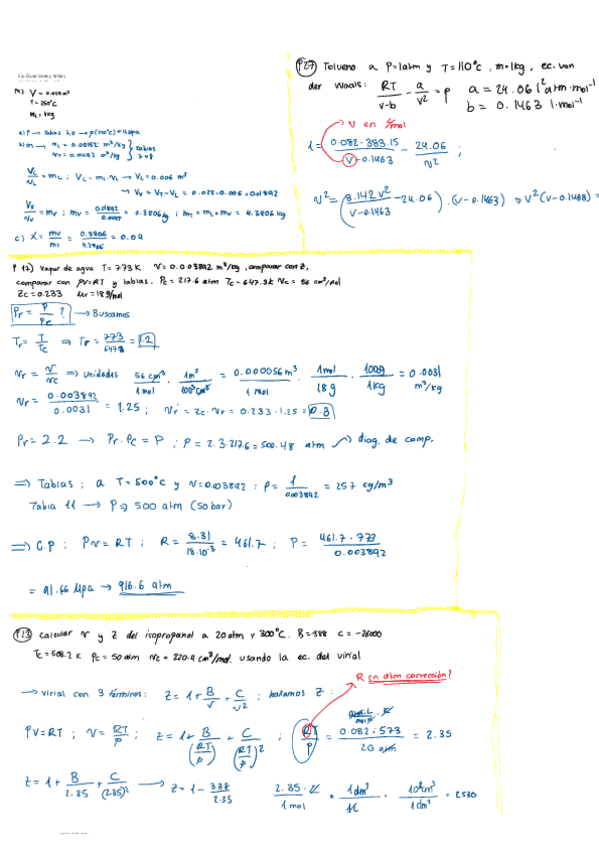 M) V = 0.025 m³
T = 250°C
a) P → Tablas 7,8 → p(250°C) = 4 MPa
b) m → mL = 0.00152 m³/kg
mv = 0.0497 m³/kg
tablas
7 y 8
VL/vL = mL ; VL = mL · vL → VL = 0.006 m³
→ Vv = VT - VL = 0.025 - 0.006 = 0.01892
c) X = mv/mT = 0.3806/4.3806 = 0.09
P27 Tolueno a P=1atm y T=110°C, m=1kg, ec. van
der Waals: RT/v-b - a/v² = P a = 24.06 l² atm·mol⁻¹
b = 0.1463 l·mol⁻¹
v en l/mol
1 = 0.082·383.15/v-0.1463 - 24.06/v² ;
v² = (3.142 v²/v-0.1463 - 24.06) · (v-0.1463) → v²(v-0.1463) =
P 17) Vapor de agua T = 773K V = 0.003892 m³/kg, comparar con Z,
comparar con PV=RT y tablas. Pc = 217.6 atm Tc = 647.3K Vc = 56 cm³/mol
Zc = 0.233 M = 18 g/mol
Pr = P/Pc ? → Buscamos
Tr = T/Tc ⇒ Tr = 773/647.3 = 1.2
vr = v/vc ⇒ unidades 56 cm³/1 mol · 1m³/100³cm³ = 0.000056 m³/1 mol · 1mol/18 g · 1000g/1kg = 0.0031 m³/kg
vr = 0.003892/0.0031 = 1.25 ; vr' = Zc · vr = 0.233 · 1.25 = 0.3
Pr = 2.2 → Pr · Pc = P ; P = 2.3·217.6 = 500.48 atm → diag. de comp.
⇒ Tablas ; a T = 500°C y v = 0.003892 : ρ = 1/0.003892 = 257 kg/m³
Tabla 11 → P ⇒ 500 atm (50 bar)
⇒ G.P ; Pv = RT ; R = 8.31/18·10⁻³ = 461.7 ; P = 461.7 · 773/0.003892
= 91.66 MPa → 916.6 atm
P23 Calcular v y Z del isopropanol a 20 atm y 300°C. B = -388 C = -26000
Tc = 508.2 K Pc = 50 atm vc = 220.4 cm³/mol. usando la ec. del virial
R en atm corrección?
→ virial con 3 términos: Z = 1 + B/v + C/v² ; hallamos Z :
PV = RT ; V = RT/P ; Z = 1 + B/(RT/P) + C/(RT/P)² ; RT/P = 0.082 · 573/20 atm = 2.35
Z = 1 + B/2.35 + C/(2.35)² → Z = 1 - 338/2.35